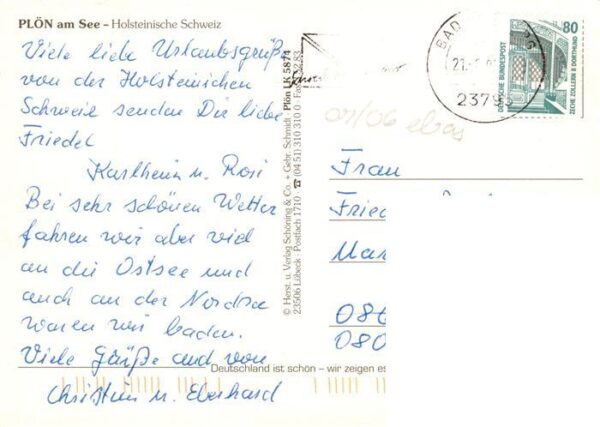 PLÖN am See – Holsteinische Schweiz
Viele liebe Urlaubsgrüße
von der Holsteinichen
Schweiz senden Dir liebe
Friedel
Karlheinz u. Rosi
Bei sehr schönen Wetter
fahren wir aber viel
an die Ostsee und
auch an der Nordsee
waren wir baden.
Viele Grüße auch von
Christum u. Eberhard
© Herst. u. Verlag Schöning & Co. + Gebr. Schmidt · Plön LK 5874
23506 Lübeck · Postfach 1710 ☎ (04 51) 310 310
Deutschland ist schön – wir zeigen es
BAD
21.
237
80
DEUTSCHE BUNDESPOST
ZECHE ZOLLERN II DORTMUND
07/06 ebay
Frau
Fried
Mar
086
080